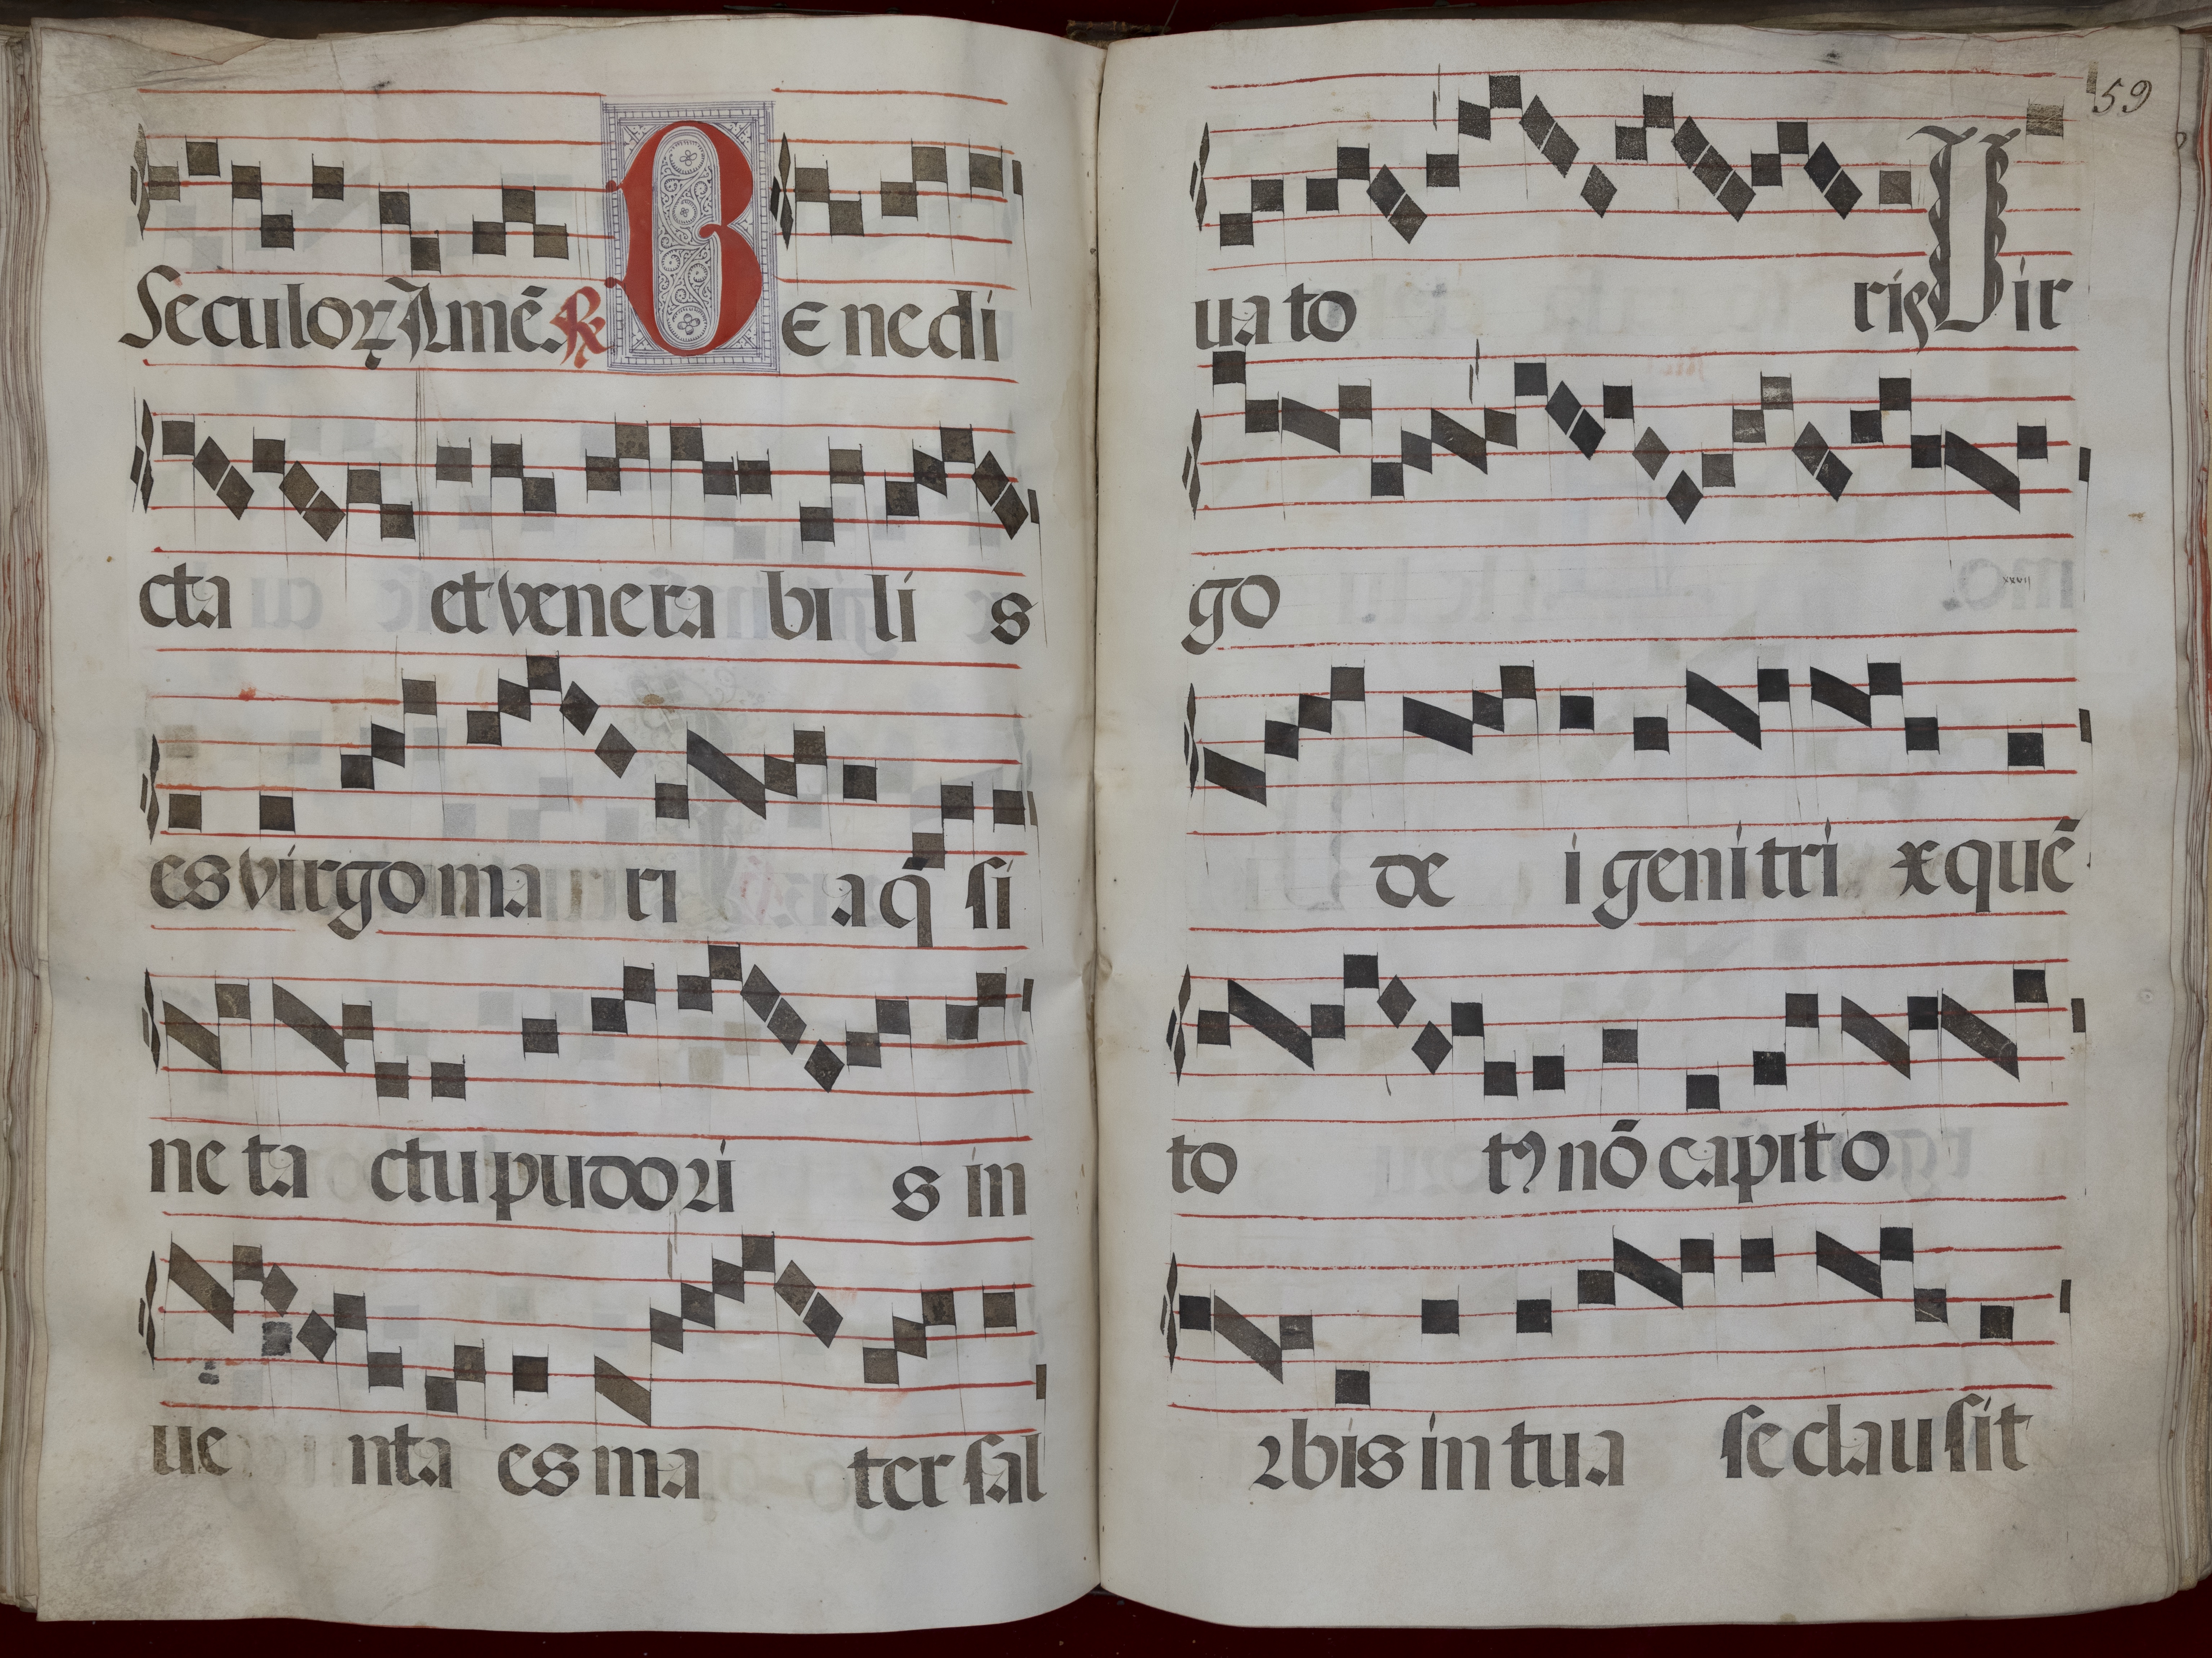 Seculoꝝ Amē. ℟ BE nedi
cta et venera bi li s
es virgo ma ri a q̄ si
ne ta ctu pudoꝛi s in
ue nta es ma ter sal
59
ua to ris Vir
go
de i geni tri x quē
to tꝰ nō capit o
ꝛbis in tua se clausit